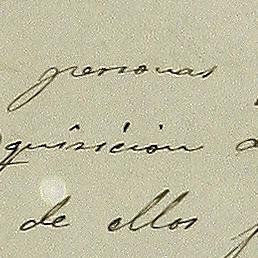 personas
quisición
de ellos